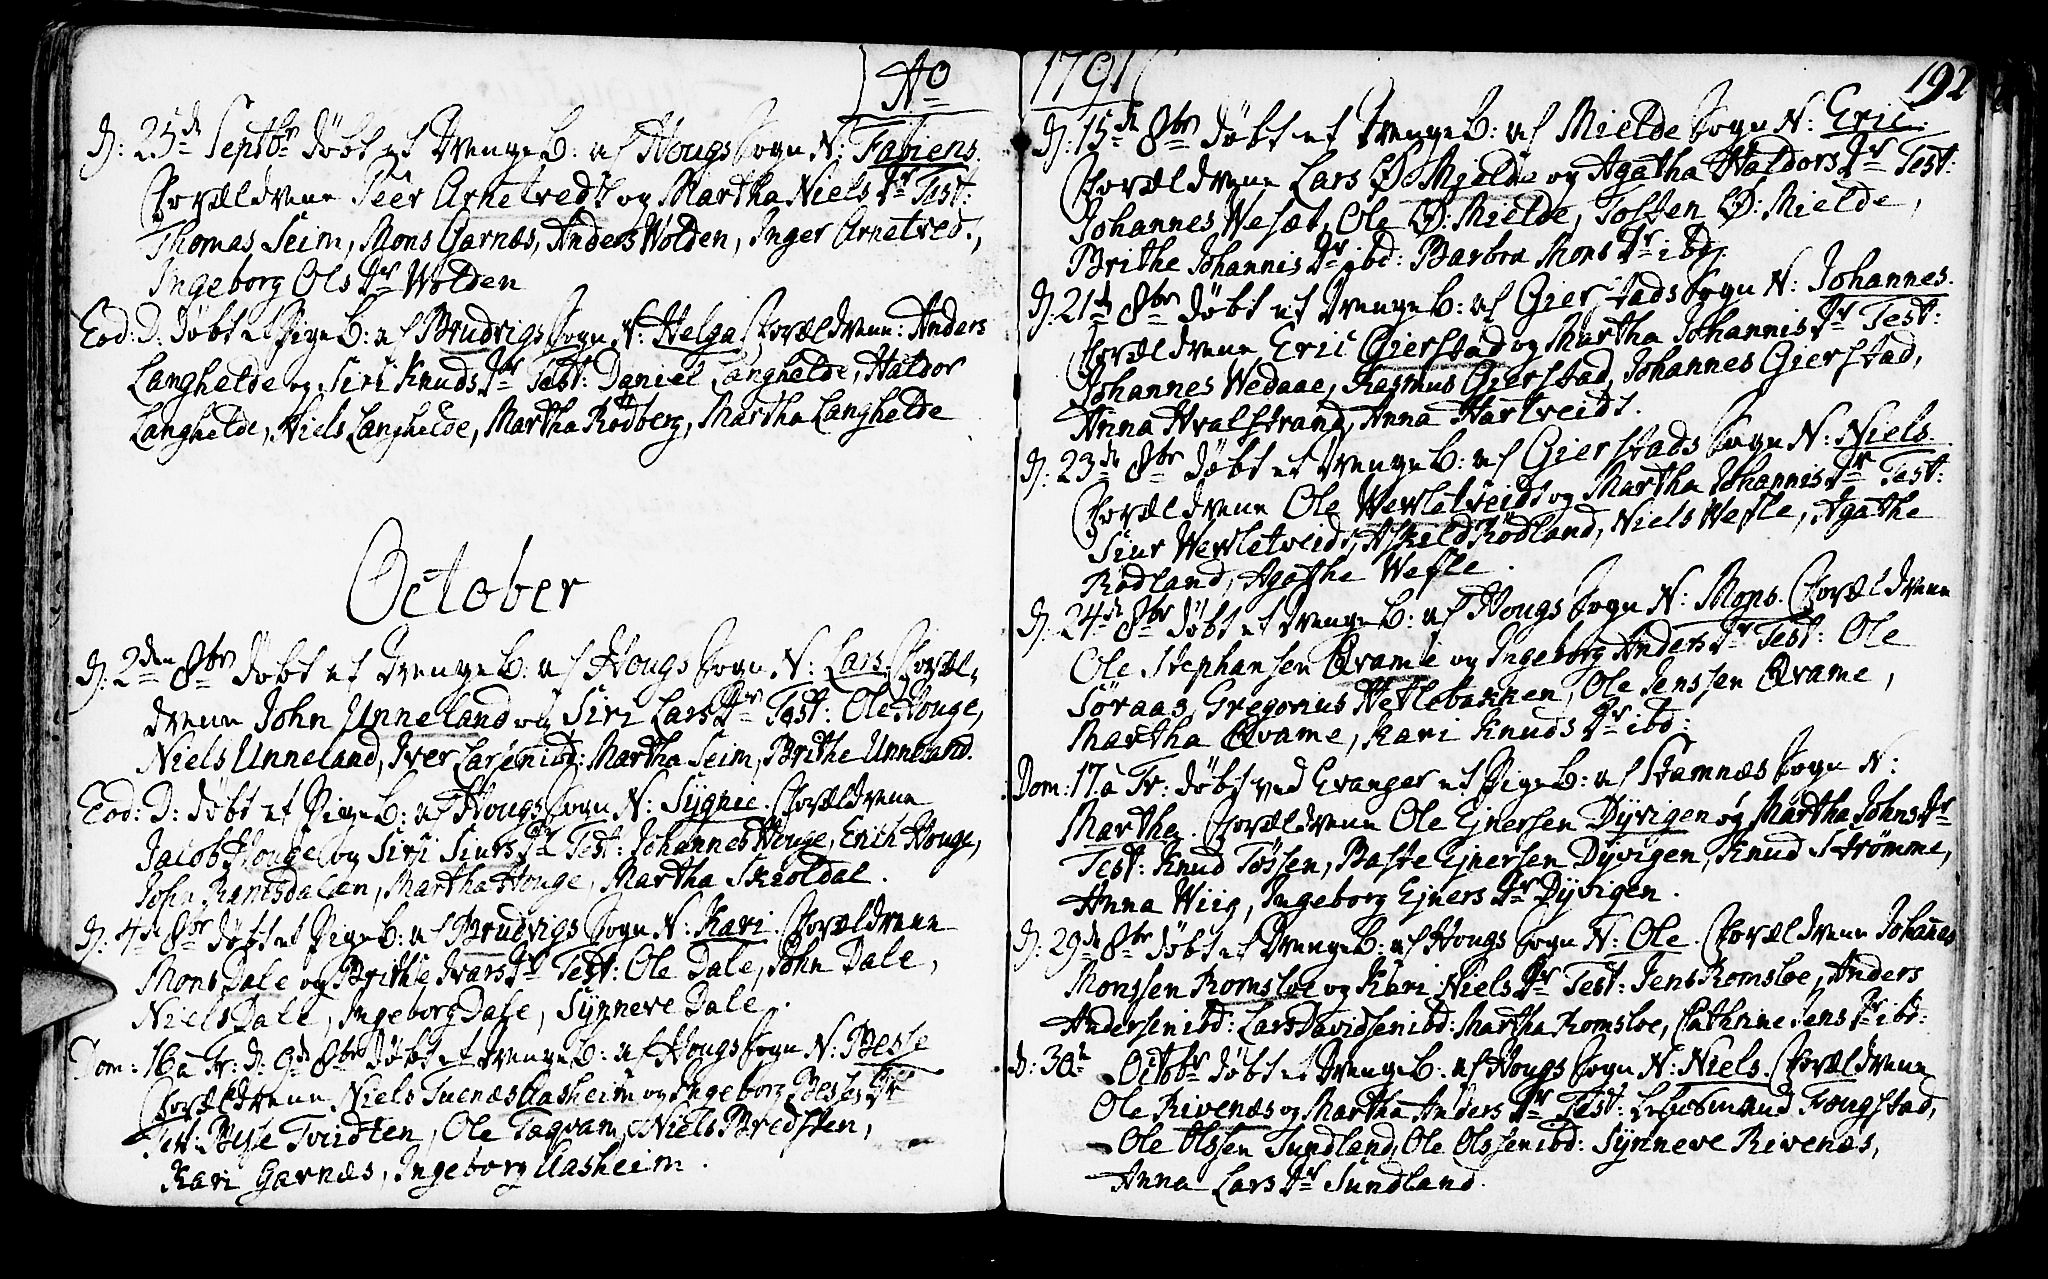 Ao
D: 25de Septbr döbt et Drenge B: af Hougs Sogn N: Fabiens.
Forældrene Peer Arnetvedt og Martha Niels Dr Test:
Thomas Seim, Mons Garnæs, Anders Wolden, Inger Arnetved.,
Ingeborg Ols Dr Wolden
Eod: D: döbt et Pige B: af Brudvigs Sogn N: Helga Forældrene: Anders
Langhelde og Siri Knuds Dr Test: Daniel Langhelde, Haldor
Langhelde, Niels Langhelde, Martha Rödberg, Martha Langhelde
October
D: 2den 8br döbt et Drenge B: af Hougs Sogn N: Lars. Foræl-
drene John Unneland og Siri Lars Dr Test: Ole Houge,
Niels Unneland, Iver Larsen ibd: Martha Seim, Brithe Unneland.
Eod: D: döbt et Pige B: af Hougs Sogn N: Sygnie. Forældrene
Jacob Houge og Siri Siurs Dr Test: Johannes Houge, Erich Houge,
John Ramsdalen, Martha Houge, Martha Skioldal.
D: 4de 8br döbt et Pige B: af Brudvigs Sogn N: Kari. Forældrene
Mons Dale og Brithe Ivars Dr Test: Ole Dale, John Dale,
Niels Dale, Ingeborg Dale, Synneve Dale.
Dom: 16 a Tr: d: 9de 8br döbt et Drenge B: af Hougs Sogn N: Besse
Forældrene Niels Tuenæs Aasheim og Ingeborg Besses Dr
Test: Besse Tvedten, Ole Taqvam, Niels Bredsten,
Kari Garnæs, Ingeborg Aasheim.
1791
192
D: 15de 8br döbt et Drenge B: af Mielde Sogn N: Eric.
Forældrene Lars Ø: Mielde og Agatha Haldors Dr Test:
Johannes Wesæt, Ole Ø: Mielde, Tosten Ø: Mielde,
Brithe Johannis Dr ibd: Barbra Mons Dr ibd.
D: 21de 8br döbt et Drenge B: af Gierstads Sogn N: Johannes.
Forældrene Eric Gierstad og Martha Johannis Dr Test:
Johannes Wedaae, Rasmus Gierstad, Johannes Gierstad,
Anna Hvalstrand, Anna Hartveidt.
D: 23de 8br döbt et Drenge B: af Gierstads Sogn N: Niels.
Forældrene Ole Wevletveidt og Martha Johannis Dr Test:
Siur Wevletveidt, Askeld Rödland, Niels Wefle, Agathe
Rödland, Agathe Wefle.
D: 24de 8br döbt et Drenge B: af Hougs Sogn N: Mons. Forældrene
Ole Stephansen Qvame og Ingeborg Anders Dr Test: Ole
Söraas, Gregorius Hetlebakken, Ole Jenssen Qvame,
Martha Qvame, Kari Knuds Dr ibd:
Dom: 17. a Tr: döbt ved Evanger et Pige B: af Stamnæs Sogn N:
Martha. Forældrene Ole Ejnersen Dyvigen og Martha Johns Dr
Test: Knud Tössen, Baste Ejnersen Dyvigen, Knud Strömme,
Anna Wiig, Ingeborg Ejners Dr Dyvigen.
D: 29de 8br döbt et Drenge B: af Hougs Sogn N: Ole. Forældrene Johannes
Monssen Romsloe og Kari Niels Dr Test: Jens Romsloe, Anders
Andersen ibd: Lars Davidsen ibd: Martha Romsloe, Cathrine Jens Dr ibd:
D: 30te Octobr döbt et Drenge B: af Hougs Sogn N: Niels. Forældrene
Ole Rivenæs og Martha Anders Dr Test: Lehnsmand Fougstad,
Ole Olssen Sundland, Ole Olssen ibd: Synneve Rivenæs,
Anna Lars Dr Sundland.